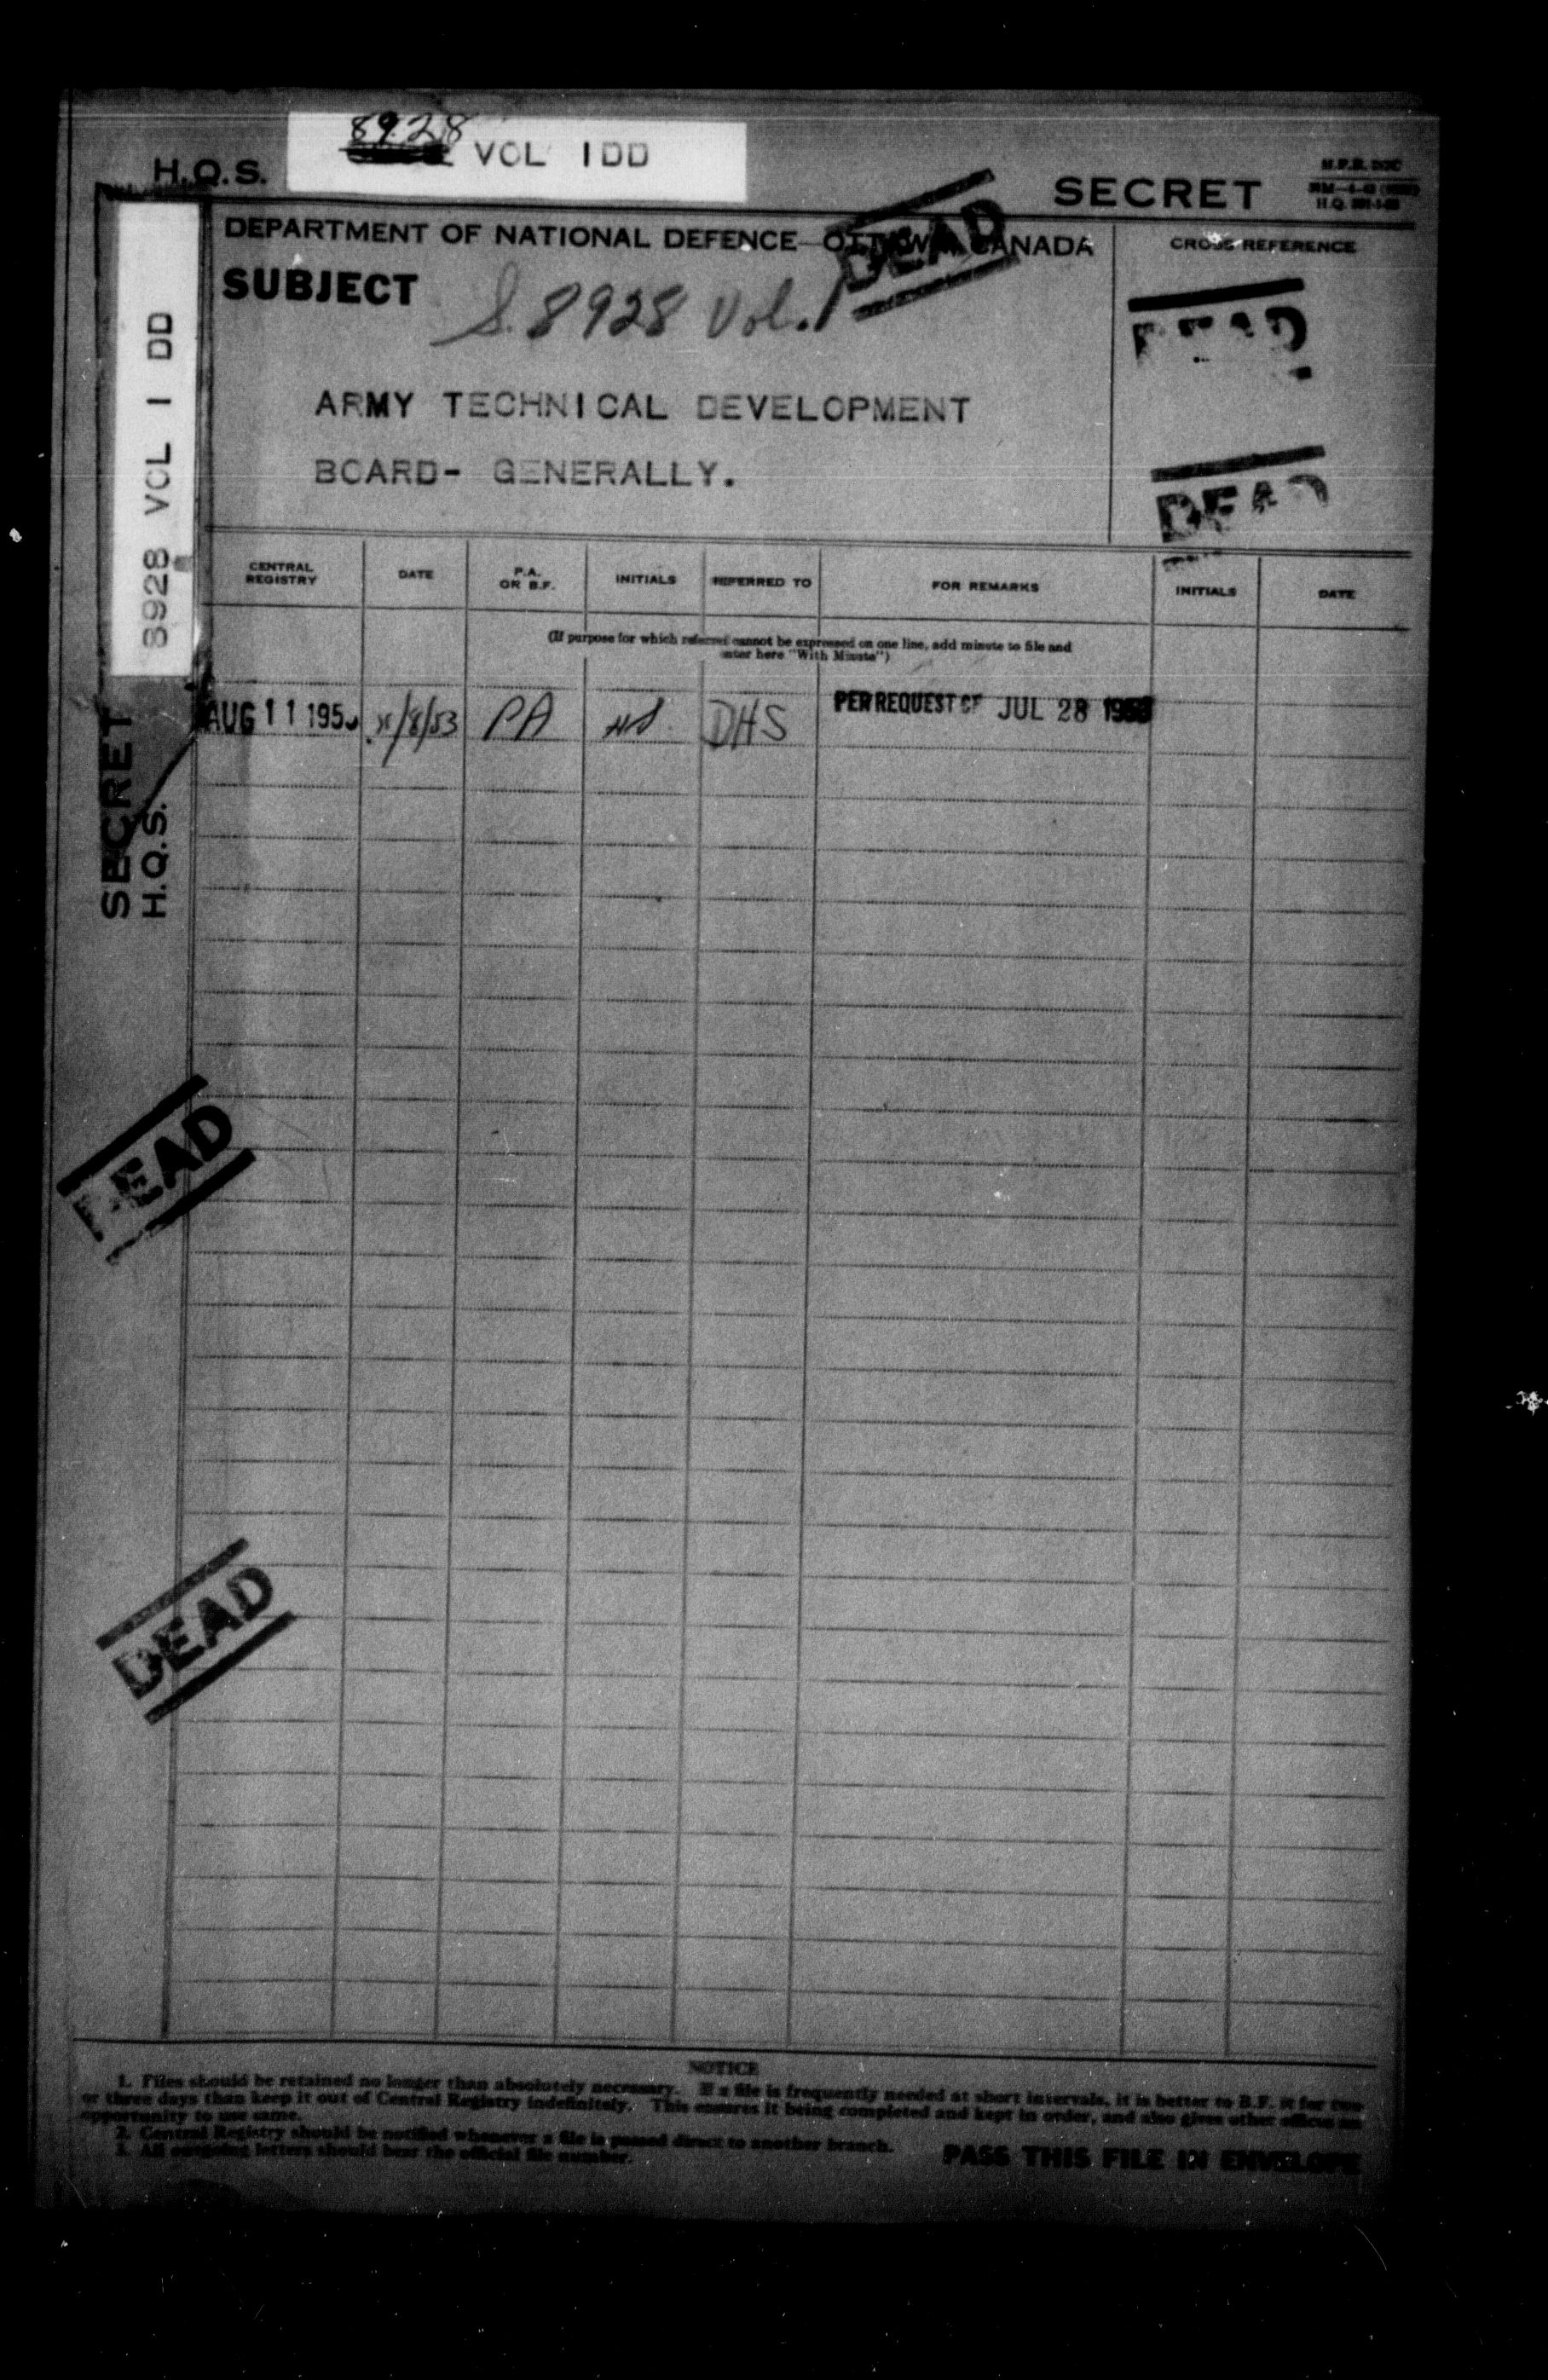 8928
VOL 1 DD
H.Q.S.
SECRET
DEPARTMENT OF NATIONAL DEFENCE—OTTAWA, CANADA
DEAD
CROSS REFERENCE
SUBJECT
S. 8928 Vol. 1
DEAD
ARMY TECHNICAL DEVELOPMENT
BOARD- GENERALLY.
DEAD
8928 VOL 1 DD
CENTRAL REGISTRY
DATE
P.A. OR B.F.
INITIALS
REFERRED TO
FOR REMARKS
INITIALS
DATE
(If purpose for which referred cannot be expressed on one line, add minute to file and
enter here "With Minute")
AUG 11 195
/8/53
PA
DHS
PER REQUEST OF JUL 28 1953
SECRET
H.Q.S.
DEAD
DEAD
NOTICE
1. Files should be retained no longer than absolutely necessary. If a file is frequently needed at short intervals, it is better to B.F. it for two
or three days than keep it out of Central Registry indefinitely. This ensures it being completed and kept in order, and also gives other offices an
opportunity to use same.
2. Central Registry should be notified whenever a file is passed direct to another branch.
3. All outgoing letters should bear the official file number.
PASS THIS FILE IN ENVELOPE